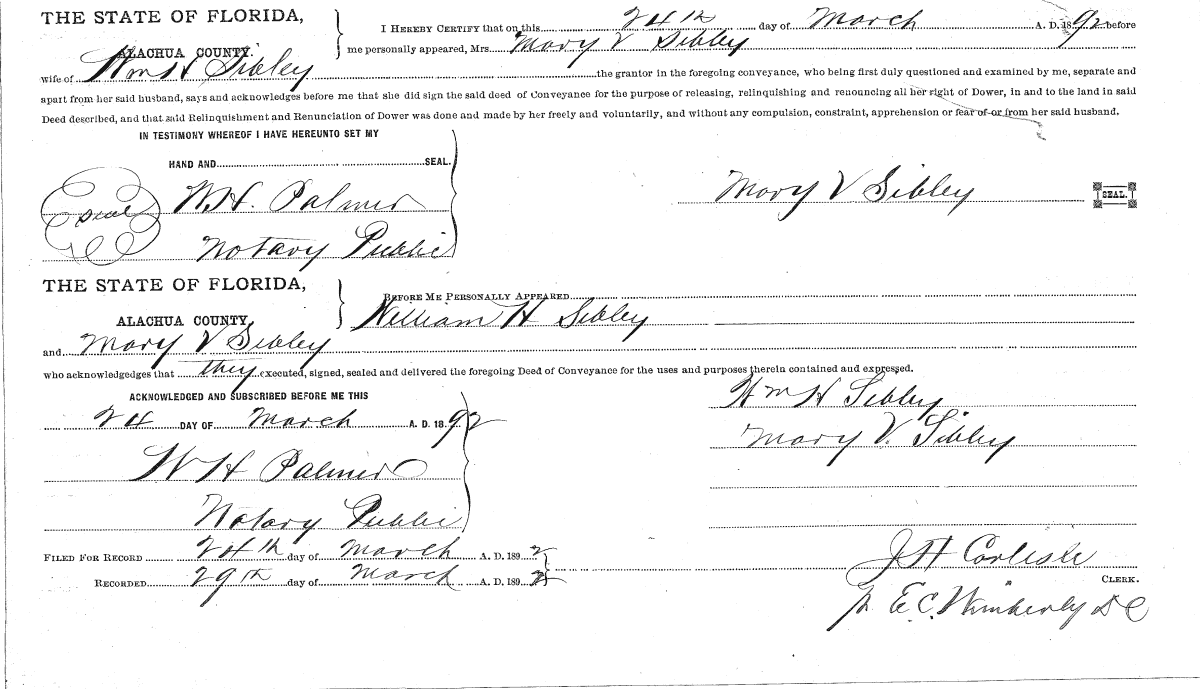 THE STATE OF FLORIDA,
ALACHUA COUNTY.
I HEREBY CERTIFY that on this 24th day of March A. D. 1892 before
me personally appeared, Mrs. Mary V Sibley
wife of Wm H Sibley the grantor in the foregoing conveyance, who being first duly questioned and examined by me, separate and
apart from her said husband, says and acknowledges before me that she did sign the said deed of Conveyance for the purpose of releasing, relinquishing and renouncing all her right of Dower, in and to the land in said
Deed described, and that said Relinquishment and Renunciation of Dower was done and made by her freely and voluntarily, and without any compulsion, constraint, apprehension or fear of or from her said husband.
IN TESTIMONY WHEREOF I HAVE HEREUNTO SET MY
HAND AND SEAL.
seal W.H. Palmer
Mary V Sibley SEAL.
Notary Public
THE STATE OF FLORIDA,
ALACHUA COUNTY,
BEFORE ME PERSONALLY APPEARED
William H Sibley
and Mary V Sibley
who acknowledgedges that they executed, signed, sealed and delivered the foregoing Deed of Conveyance for the uses and purposes therein contained and expressed.
ACKNOWLEDGED AND SUBSCRIBED BEFORE ME THIS
24 DAY OF March A. D. 18 92
Wm H Sibley
Mary V. Sibley
W H Palmer
Notary Public
FILED FOR RECORD 24th day of March A. D. 189 2
RECORDED 29th day of March A. D. 189 2
J H Carlisle
CLERK.
E. C. Wimberly D C